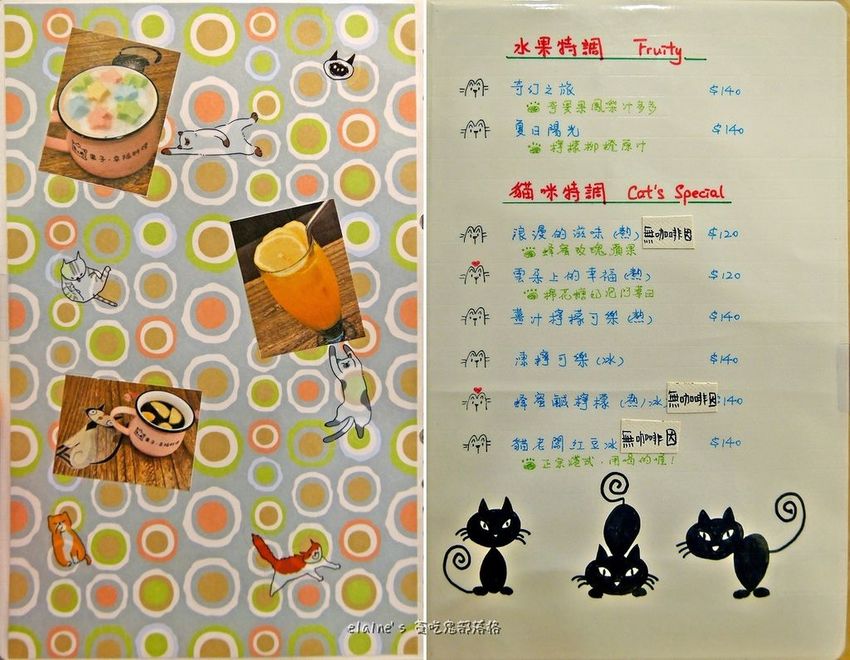 水果特調 Fruity
奇幻之旅 $140
奇異果鳳梨汁多多
夏日陽光 $140
檸檬柳橙原汁
貓咪特調 Cat's Special
浪漫的滋味(熱) 無咖啡因 $120
蜂蜜玫瑰蘋果
雲朵上的幸福(熱) $120
棉花糖奶泡
薑汁檸檬可樂(熱) $140
凍檸可樂(冰) $140
蜂蜜鹹檸檬(熱)/冰 無咖啡因 $140
貓老闆紅豆冰 無咖啡因 $140
正宗港式.用喝的喔!
果子.幸福料理
果子.幸福料理
elaine's 貪吃鬼部落格